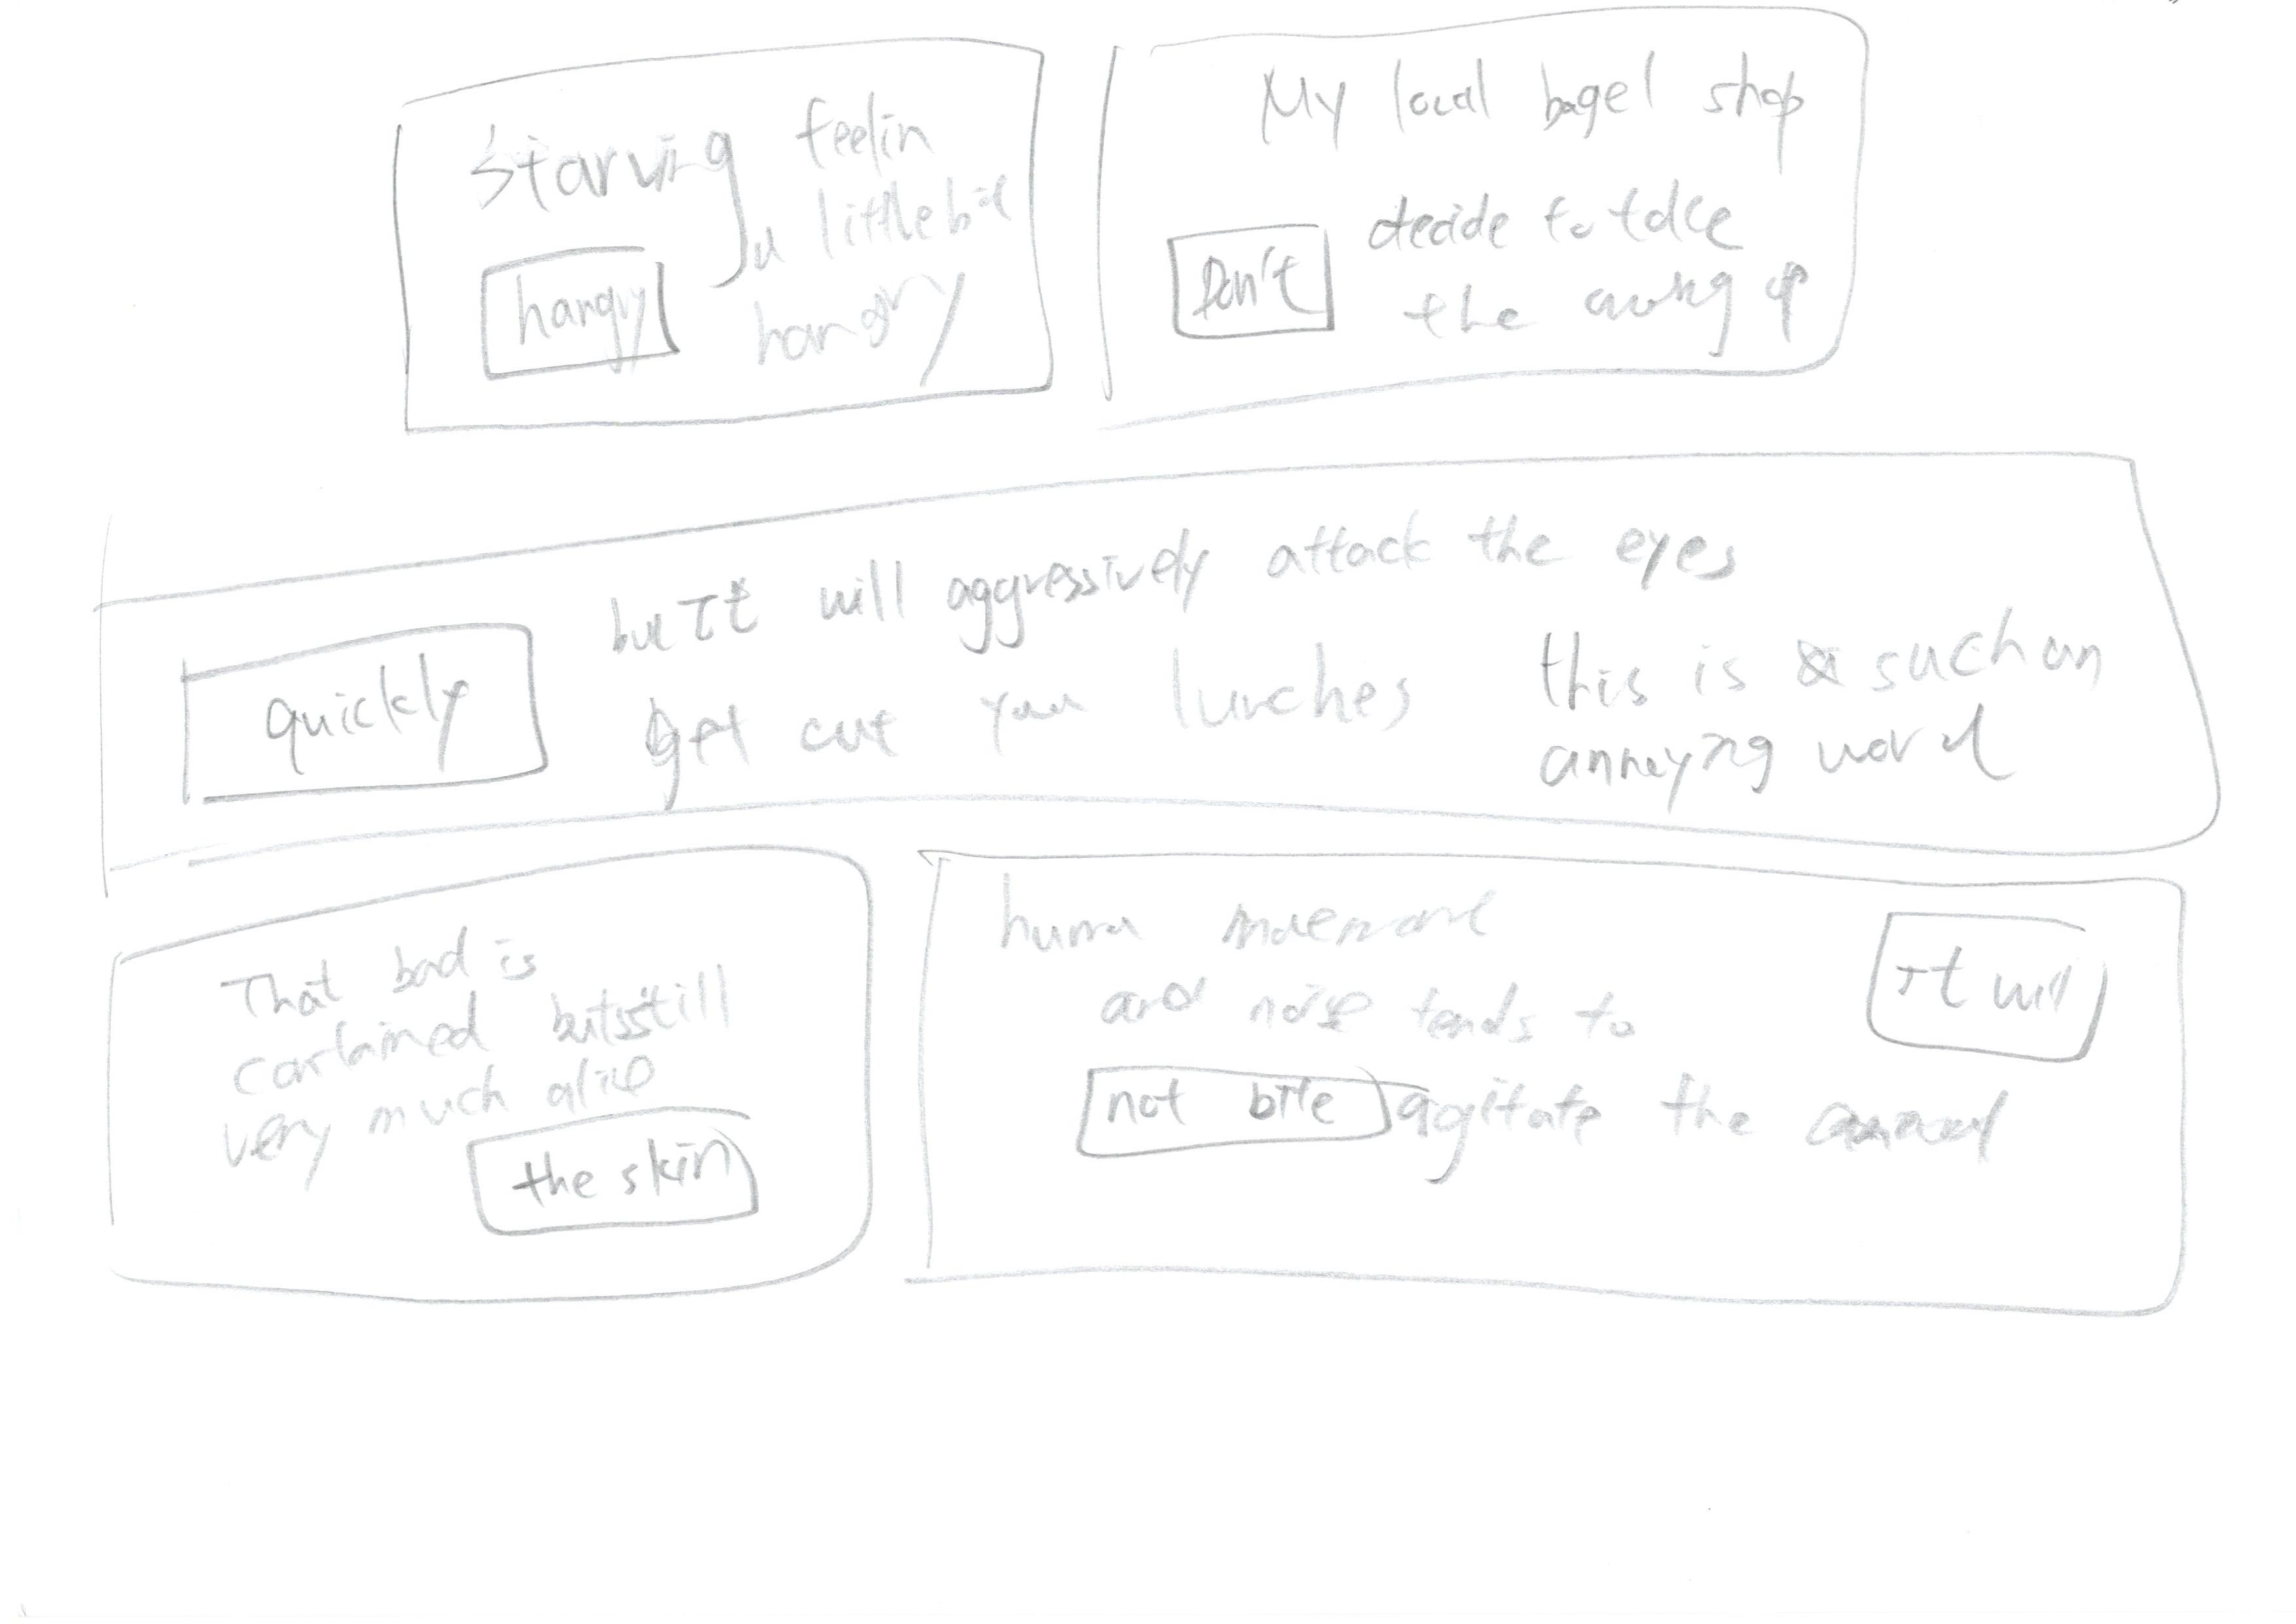 starving feelin
a little bit
hangry hangry
My local bagel shop
Don't decide to take
the wrong up
but It will aggressively attack the eyes
quickly get out your lunches this is such an
annoying word
That bad is
contained but still
very much alive
the skin
human
and noise tends to It will
not bite agitate the